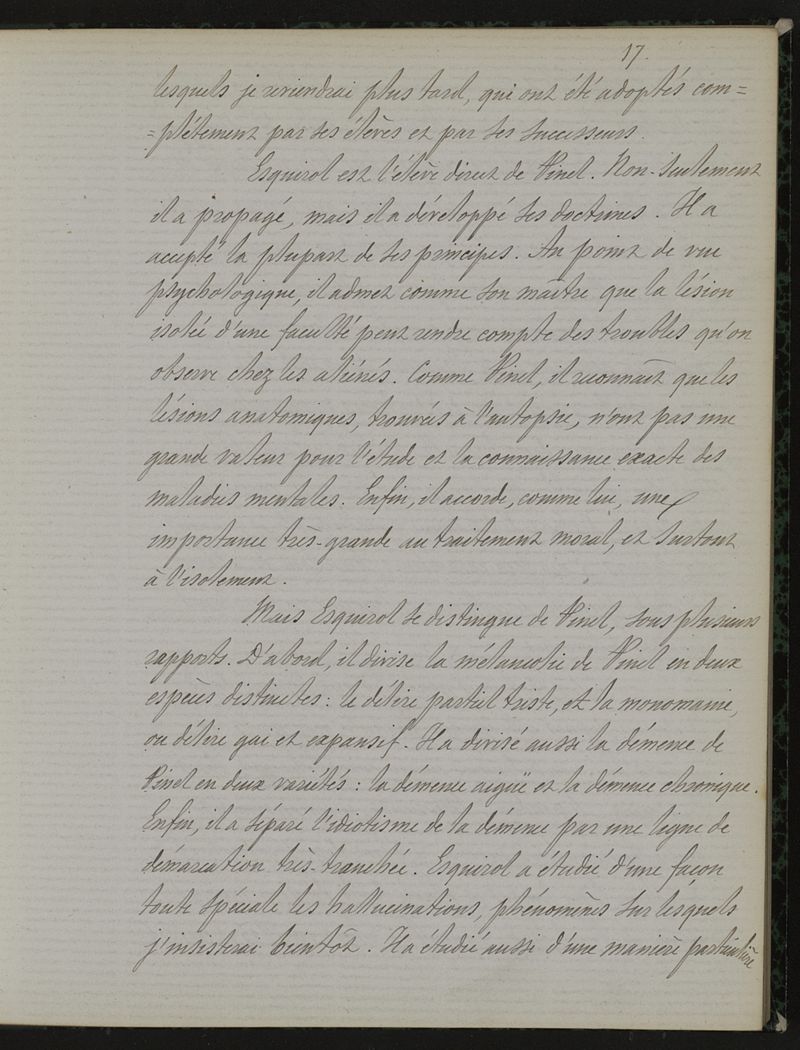 17.
lesquels je reviendrai plus tard, qui ont été adoptés com=
=plétement par ses élèves et par ses successeurs.
Esquirol est l'élève direct de Pinel. Non-seulement
il a propagé, mais il a développé ses doctrines. Il a
accepté la plupart de ses principes. Au point de vue
psychologique, il admet comme son maître que la lésion
isolée d'une faculté peut rendre compte des troubles qu'on
observe chez les aliénés. Comme Pinel, il reconnaît que les
lésions anatomiques, trouvées à l'autopsie, n'ont pas une
grande valeur pour l'étude et la connaissance exacte des
maladies mentales. Enfin, il accorde, comme lui, une
importance très-grande au traitement moral, et surtout
à l'isolement.
Mais Esquirol se distingue de Pinel, sous plusieurs
rapports. D'abord, il divise la mélancolie de Pinel en deux
espèces distinctes: le délire partiel triste, et la monomanie,
ou délire gai et expansif. Il a divisé aussi la démence de
Pinel en deux variétés: la démence aiguë et la démence chronique.
Enfin, il a séparé l'idiotisme de la démence par une ligne de
démarcation très-tranchée. Esquirol a étudié d'une façon
toute spéciale les hallucinations, phénomènes sur lesquels
j'insisterai bientôt. Il a étudié aussi d'une manière particulière